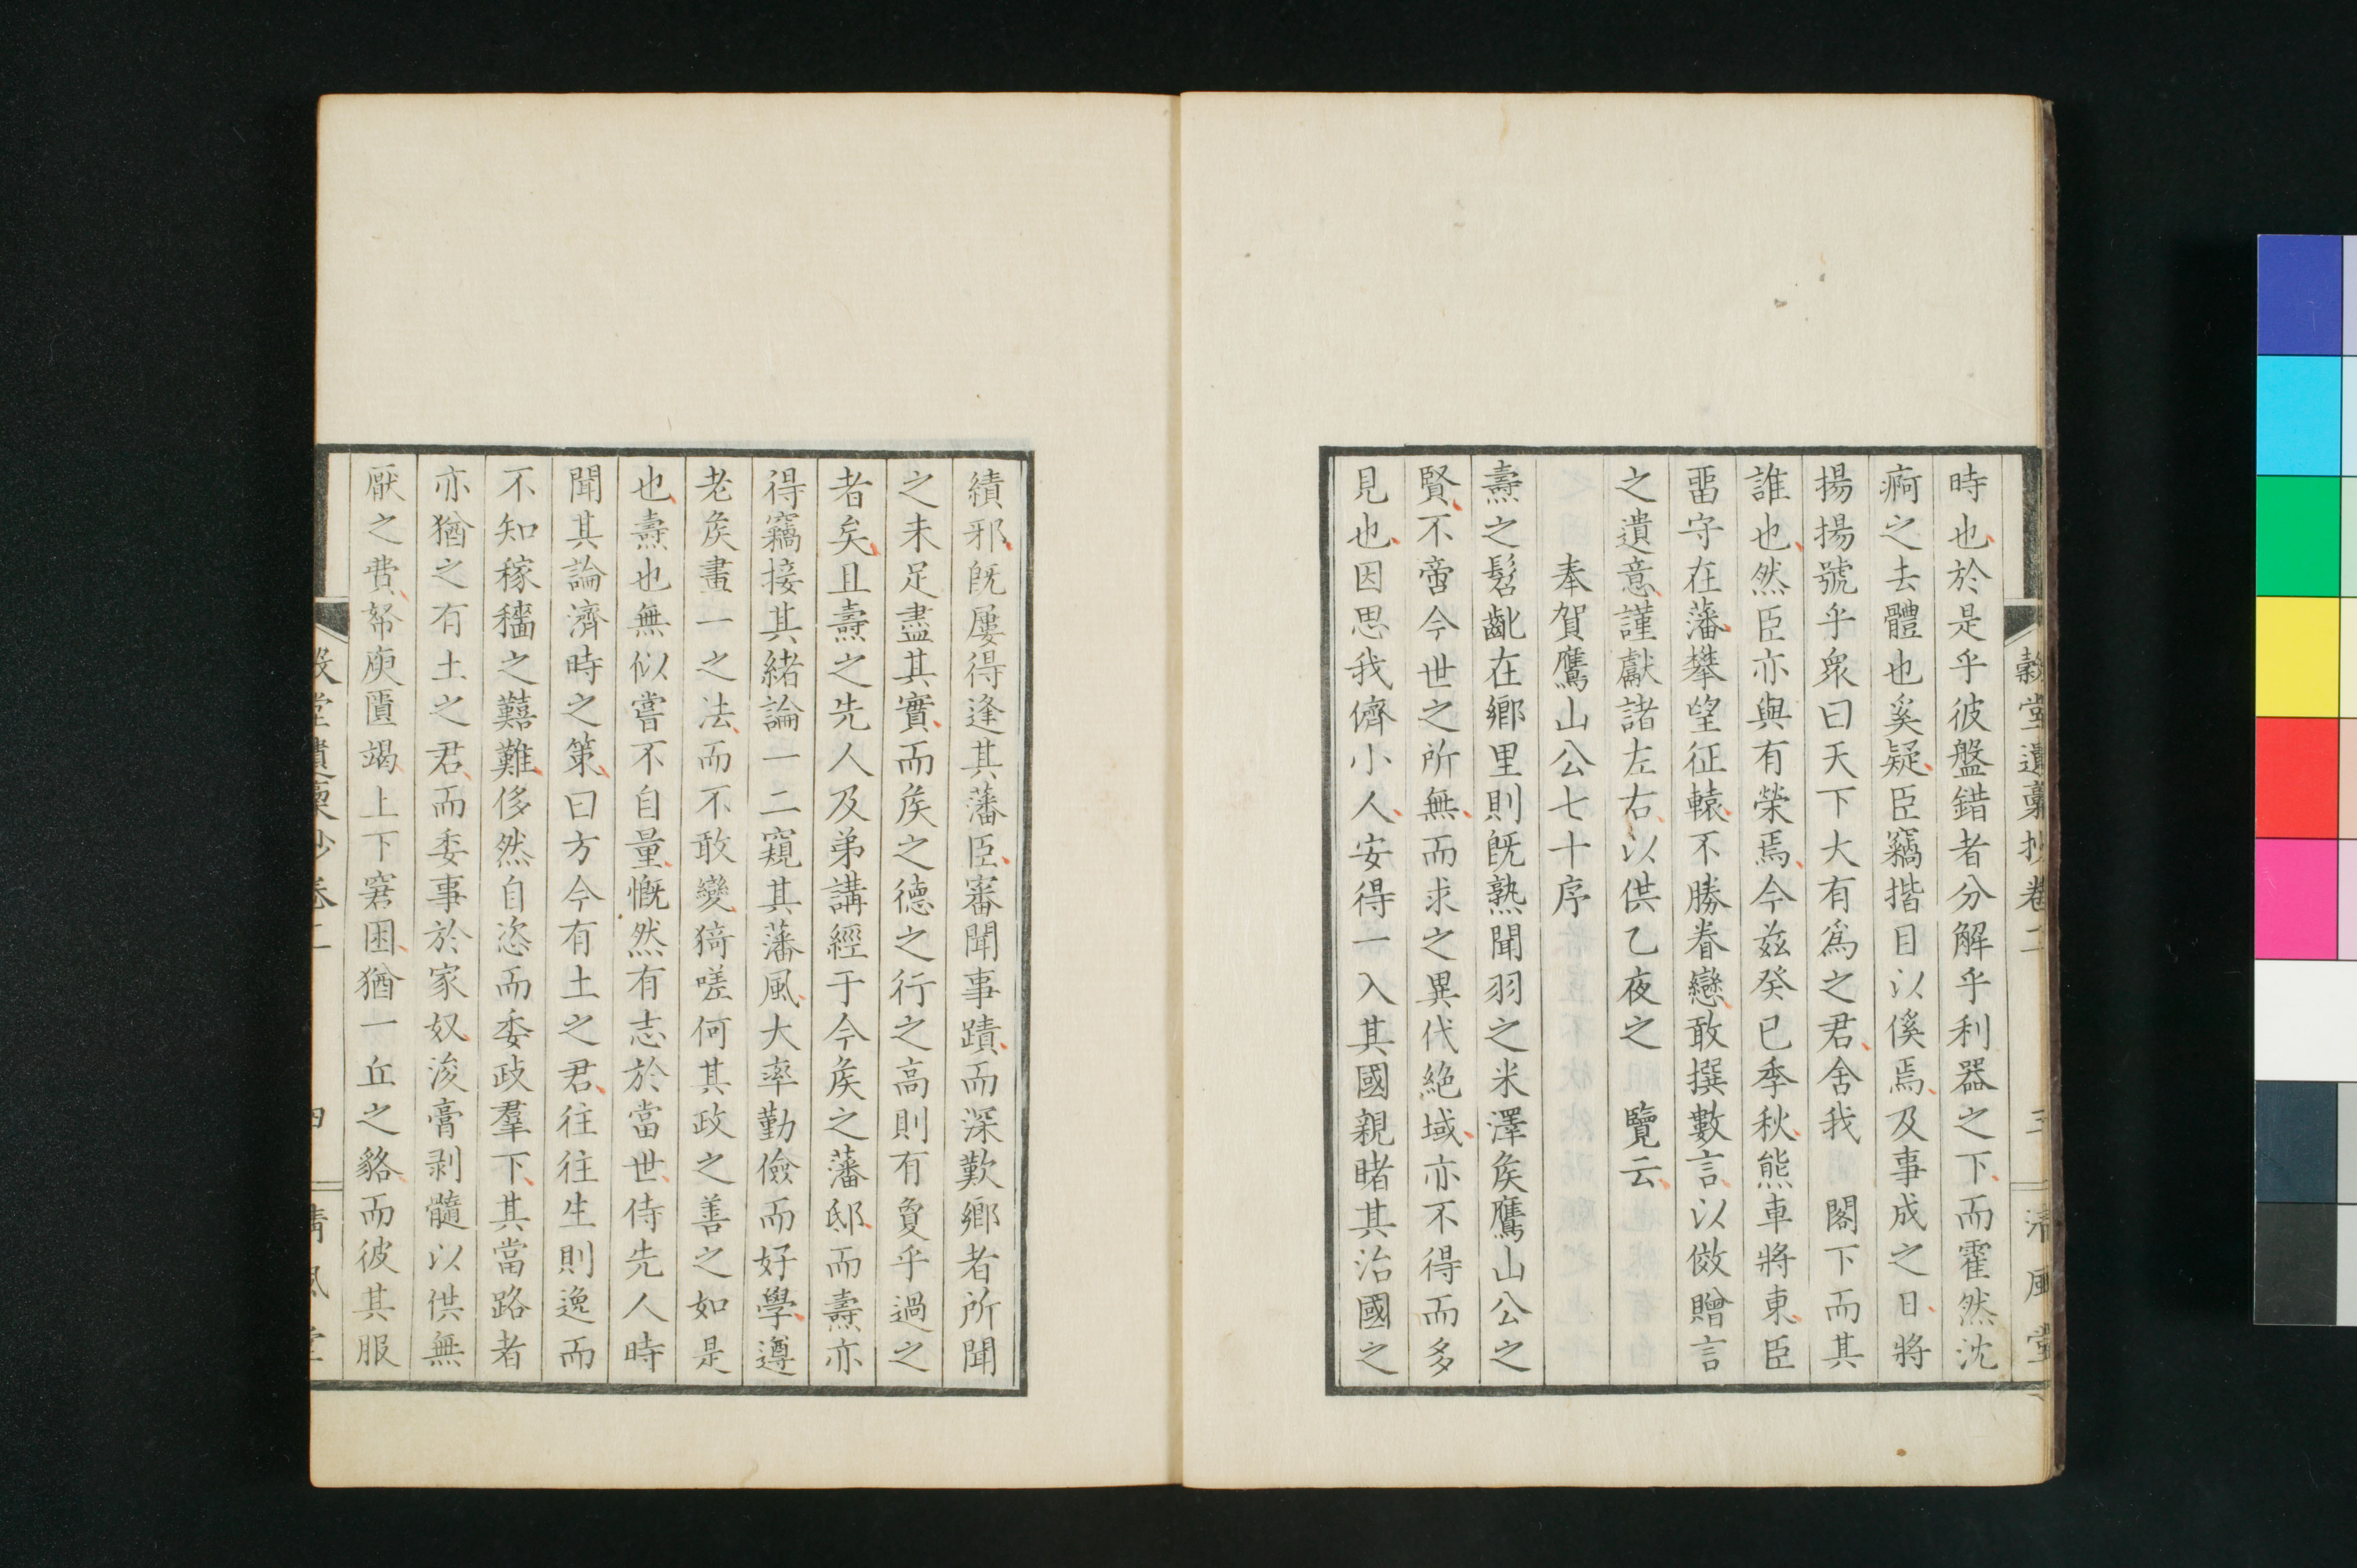 穀堂遺藁抄卷二 三 清風堂
時也於是乎彼盤錯者分解乎利器之下而霍然沈
痾之去體也奚疑臣竊揩目以傒焉及事成之日將
揚揚號乎衆曰天下大有爲之君舍我 閣下而其
誰也然臣亦與有榮焉今茲癸巳季秋熊車將東臣
畱守在藩攀望征轅不勝眷戀敢撰數言以傚贈言
之遺意謹獻諸左右以供乙夜之 覽云
奉賀鷹山公七十序
燾之髫齔在鄉里則旣熟聞羽之米澤矦鷹山公之
賢不啻今世之所無而求之異代絕域亦不得而多
見也因思我儕小人安得一入其國親睹其治國之
績邪旣屢得逢其藩臣審聞事蹟而深歎鄉者所聞
之未足盡其實而矦之德之行之高則有夐乎過之
者矣且燾之先人及弟講經于今矦之藩邸而燾亦
得竊接其緒論一二窺其藩風大率勤儉而好學遵
老矦畫一之法而不敢變猗嗟何其政之善之如是
也燾也無似嘗不自量慨然有志於當世侍先人時
聞其論濟時之策曰方今有土之君往往生則逸而
不知稼穡之囏難侈然自恣而委政羣下其當路者
亦猶之有土之君而委事於家奴浚膏剥髓以供無
厭之費帑庾匱竭上下窘困猶一丘之貉而彼其服
穀堂遺藁抄卷二 四 清風堂